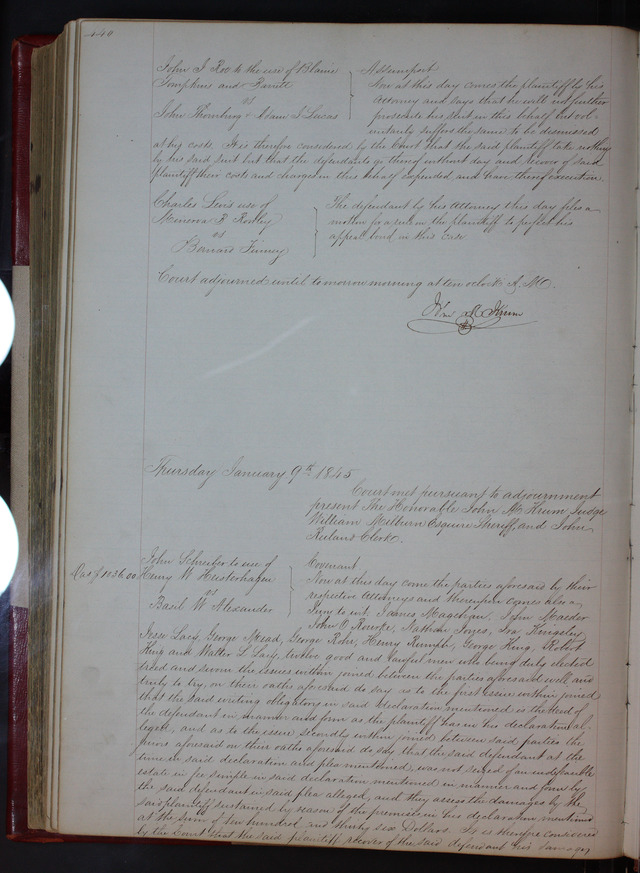 140
John J Roe to the use of Blaine
Tompkins and Barrett
vs
John Thornburg & Adam S Lucas
Assumpsit
Now at this day comes the plaintiff by his
attorney and says that he will not further
prosecute his suit in this behalf but vol-
untarily suffers the same to be dismissed
at his costs. It is therefore considered by the Court that the said plaintiff take nothing
by his said suit but that the defendants go thereof without day and recover of said
plaintiff their costs and charges in this behalf expended, and have thereof execution
Charles Lewis use of
Minerva P Rowley
vs
Barnard Finney
The defendant by his Attorney this day files a
motion for a rule on the plaintiff to perfect his
appeal bond in this case
Court adjourned until tomorrow morning at ten oclock A.M.
Jno M Krum
Thursday January 9th 1845
Court met pursuant to adjournment
present The Honorable John M Krum Judge
William Milburn Esquire Sheriff and John
Ruland Clerk.
Das $1036.00
John Schreiber to use of
Henry W Heisterhagen
vs
Basil W Alexander
Covenant
Now at this day come the parties aforesaid by their
respective attorneys and thereupon comes also a
Jury to wit, James Magehan, John Maeder
John O Rourke, Nathan Jones, Ira Kingsley
Jesse Lacy, George Mead, George Rohr, Henry Rumph, George King, Robert
King and Walter L Lacy, twelve good and lawful men who being duly elected
tried and sworn the issues within joined between the parties aforesaid well and
truly to try, on their oaths aforesaid do say as to the first issue within joined
that the said writing obligatory in said declaration mentioned is the deed of
the defendant in manner and form as the plaintiff has in his declaration al-
leged, and as to the issue secondly within joined between said parties the
jurors aforesaid on their oaths aforesaid do say that the said defendant at the
time in said declaration and plea mentioned, was not seized of an indefeasible
estate in fee simple in said declaration mentioned in manner and form as
the said defendant in said plea alleged, and they assess the damages by the
said plaintiff sustained by reason of the premises in his declaration mentioned
at the sum of ten hundred and thirty six Dollars. It is therefore considered
by the Court that the said plaintiff recover of the said defendant his damages